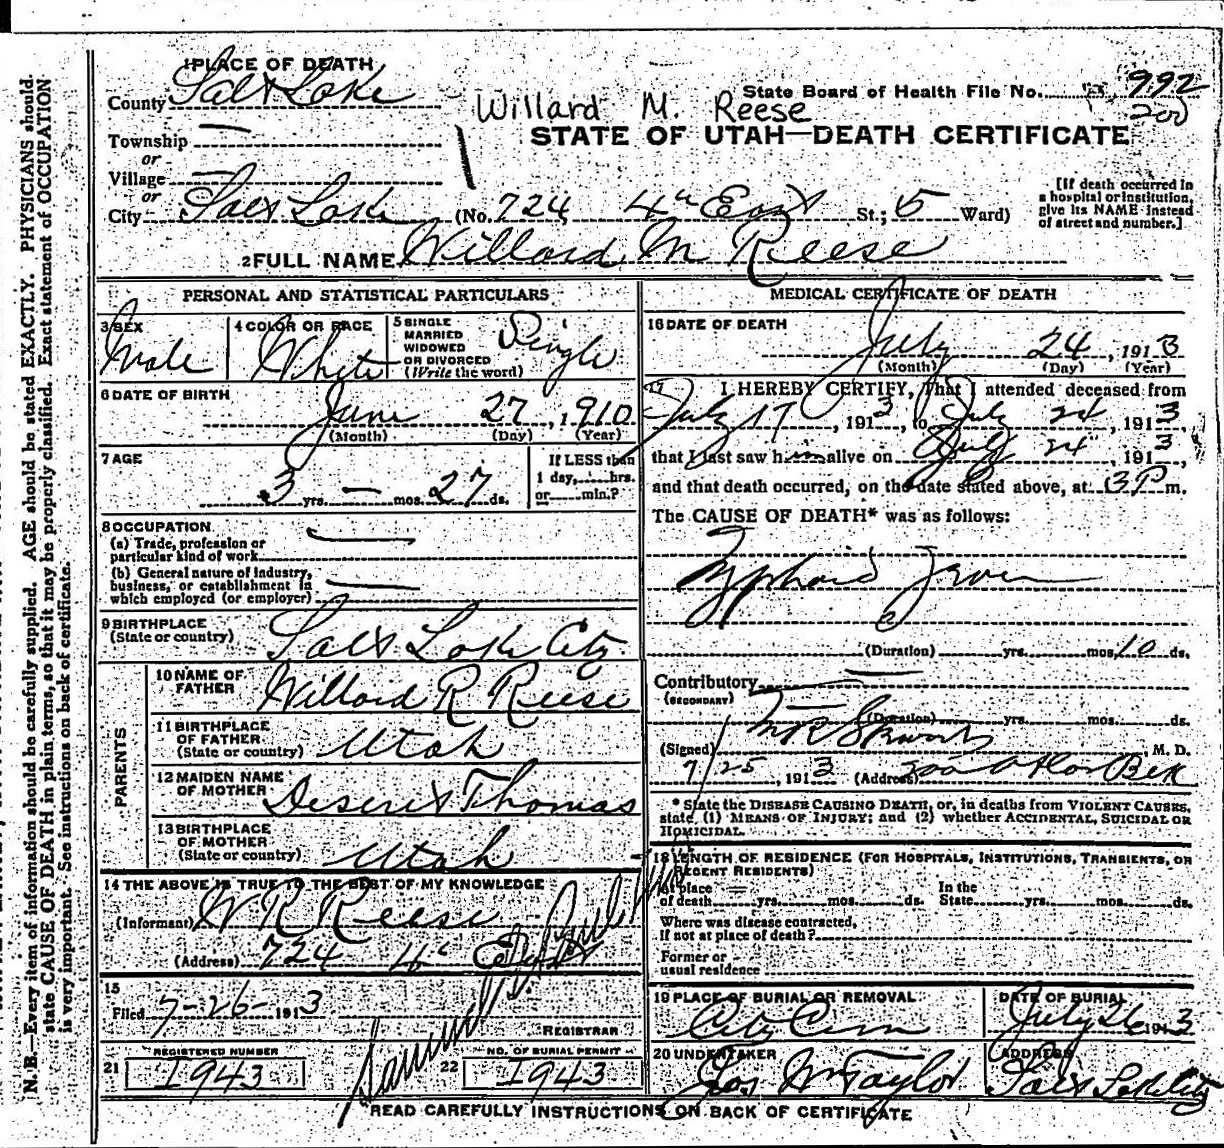 N. B.—Every item of information should be carefully supplied. AGE should be stated EXACTLY. PHYSICIANS should
state CAUSE OF DEATH in plain terms, so that it may be properly classified. Exact statement of OCCUPATION
is very important. See instructions on back of certificate.
1 PLACE OF DEATH
County Salt Lake
Township —
or
Village —
or
City Salt Lake (No. 724 4th East St.; 5 Ward)
State Board of Health File No. 992
200
Willard M. Reese
STATE OF UTAH—DEATH CERTIFICATE
[If death occurred in
a hospital or institution,
give its NAME instead
of street and number.]
2 FULL NAME Willard M Reese
PERSONAL AND STATISTICAL PARTICULARS
3 SEX
Male
4 COLOR OR RACE
White
5 SINGLE
MARRIED
WIDOWED
OR DIVORCED
(Write the word)
Single
6 DATE OF BIRTH
June 27, 1910
(Month) (Day) (Year)
7 AGE
3 yrs. — mos. 27 ds.
If LESS than
1 day,......hrs.
or......min.?
8 OCCUPATION
(a) Trade, profession or
particular kind of work —
(b) General nature of industry,
business, or establishment in
which employed (or employer) —
9 BIRTHPLACE
(State or country) Salt Lake City
PARENTS
10 NAME OF
FATHER Willard R Reese
11 BIRTHPLACE
OF FATHER
(State or country) Utah
12 MAIDEN NAME
OF MOTHER Deseret Thomas
13 BIRTHPLACE
OF MOTHER
(State or country) Utah
14 THE ABOVE IS TRUE TO THE BEST OF MY KNOWLEDGE
(Informant) W R Reese
(Address) 724 4th E
15
Filed 7-26-1913
REGISTRAR
REGISTERED NUMBER
21 1943
NO. OF BURIAL PERMIT
22 1943
MEDICAL CERTIFICATE OF DEATH
16 DATE OF DEATH
July 24, 1913
(Month) (Day) (Year)
17 I HEREBY CERTIFY, That I attended deceased from
July 17, 1913, to July 24, 1913
that I last saw him alive on July 24, 1913,
and that death occurred, on the date stated above, at 3 P m.
The CAUSE OF DEATH* was as follows:
Typhoid Fever
(Duration) yrs. mos. 10 ds.
Contributory —
(SECONDARY)
(Duration) yrs. mos. ds.
(Signed) , M. D.
7/25, 1913 (Address)
* State the DISEASE CAUSING DEATH, or, in deaths from VIOLENT CAUSES,
state (1) MEANS OF INJURY; and (2) whether ACCIDENTAL, SUICIDAL OR
HOMICIDAL.
18 LENGTH OF RESIDENCE (FOR HOSPITALS, INSTITUTIONS, TRANSIENTS, OR
RECENT RESIDENTS)
At place
of death yrs. mos. ds.
In the
State yrs. mos. ds.
Where was disease contracted,
If not at place of death?
Former or
usual residence
19 PLACE OF BURIAL OR REMOVAL
City Cem
DATE OF BURIAL
July 26 1913
20 UNDERTAKER
Jos Wm Taylor
ADDRESS
Salt Lake City
READ CAREFULLY INSTRUCTIONS ON BACK OF CERTIFICATE